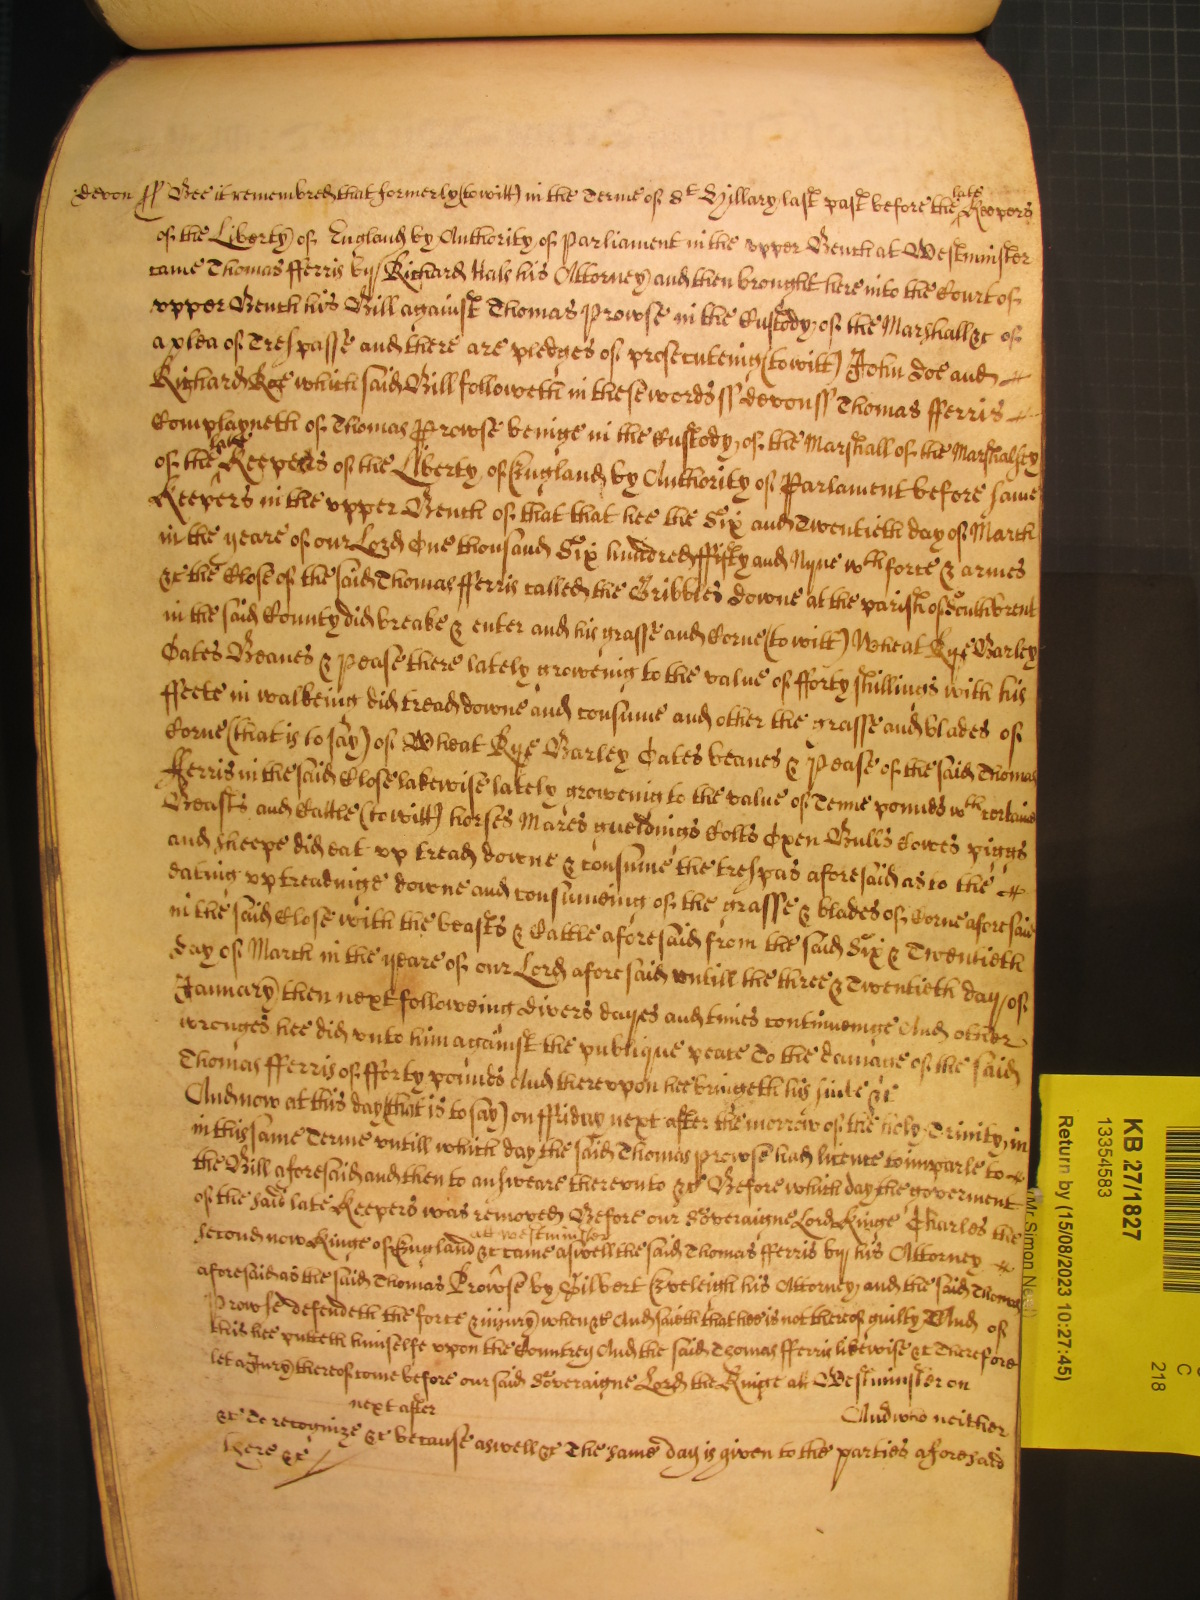 devon ss Bee it remembred that formerly (to witt) in the Terme of St Hillary last past before the late Keepers
of the Liberty of England by Authority of Parliament in the upper Bench at Westminster
came Thomas fferris by Richard Hals his Attorney and then brought here into the Court of
upper Bench his Bill against Thomas Prowse in the Custody of the Marshall &c of
a plea of Trespasse and there are pledges of prosecuteinge (to witt) John Doe and
Richard Roe which said Bill followeth in these words ss devon ss Thomas fferris
Complayneth of Thomas Prowse beinge in the Custody of the Marshall of the Marshalsey
of the late Keepers of the Liberty of England by Authority of Parlament before same
Keepers in the upper Bench of that that hee the Six and Twentieth day of March
in the yeare of our Lord One thousand Six hundred ffifty and Nyne wth force & armes
&c the Close of the said Thomas fferris called the Gribbles Downe at the parish of
in the said County did breake & enter and his grasse and Corne (to witt) Wheat Rye Barley
Oates Beanes & Pease there lately groweing to the value of fforty shillings with his
ffeete in walkeing did tread downe and consume and other the grasse and blades of
Corne (that is to say) of Wheat Rye Barley Oates beanes & Pease of the said Thomas
fferris in the said Close lakewise lately groweing to the value of Tenne pounds wth certaine
Beasts and Cattle (to witt) horses Mares gueldings Colts Oxen Bulls Cowes piggs
and sheepe did eat up tread downe & consume the trespas aforesaid as to the
eating up treadinge downe and consumeing of the grasse & blades of Corne aforesaid
in the said Close with the beasts & Cattle aforesaid from the said Six & Twentieth
day of March in the yeare of our Lord aforesaid untill the three & Twentieth day of
January then next followeing divers dayes and times continueinge And other
wronges hee did unto him against the publique peace To the damage of the said
Thomas fferris of fforty pounds And thereupon hee bringeth his suite &c
And now at this day (that is to say) on ffriday next after the morrow of the holy Trinity in
in this same Terme untill which day the said Thomas Prowse had licence to imparle to
the Bill aforesaid and then to answeare thereunto &c Before which day the goverment
of the said late Keepers was removed Before our Soveraigne Lord Kinge Charles the
second now Kinge of England &c at Westminster came aswell the said Thomas fferris by his Attorney
aforesaid as the said Thomas Prowse by Gilbert Eveleigh his Attorney and the said Thomas
Prowse defendeth the force & injury when &c And saith that hee is not thereof guilty And of
this hee putteth himselfe upon the Countrey And the said Thomas fferris likewise &c Therefore
let a Jury thereof come before our said Soveraigne Lord the Kinge att Westminster on
next after And who neither
&c To recognize &c because aswell &c The same day is given to the parties aforesaid
here &c
KB 27/1827
13354583
Return by (15/08/2023 10:27:45)
C
218